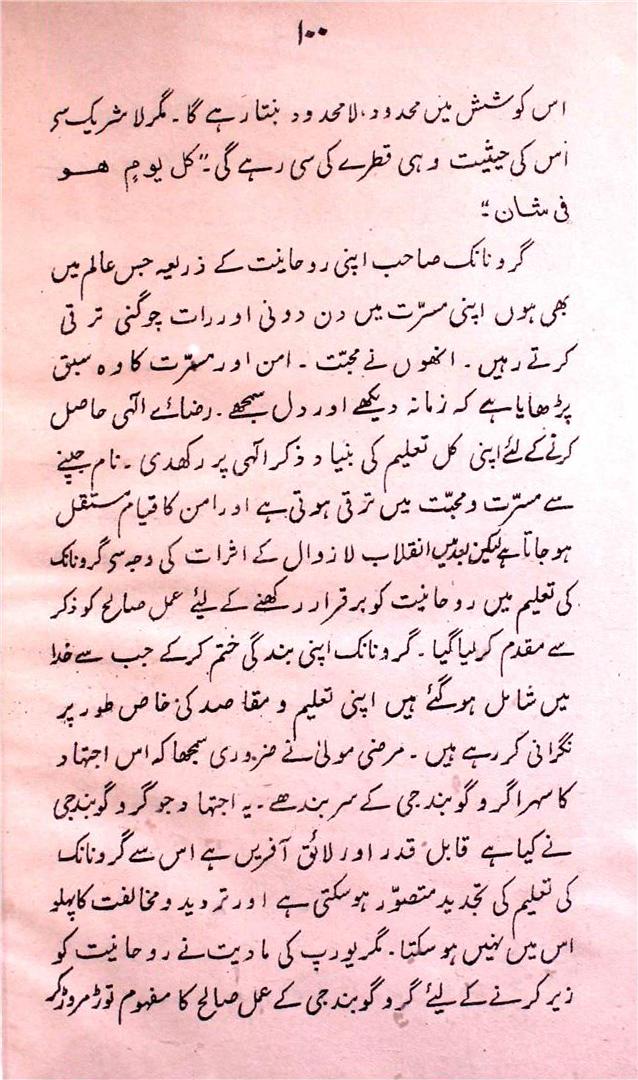 ۱۰۰
اس کوشش میں محدود، لامحدود بنتا رہے گا۔ مگر لا شریک سے
اس کی حیثیت وہی قطرے کی سی رہے گی۔ "کل یومٍ هو
فی شان"
گرونانک صاحب اپنی روحانیت کے ذریعہ جس عالم میں
بھی ہوں اپنی مسرّت میں دن دونی اور رات چوگنی ترقی
کرتے رہیں۔ انھوں نے محبّت۔ امن اور مسرّت کا وہ سبق
پڑھایا ہے کہ زمانہ دیکھے اور دل سمجھے۔ رضائے الٰہی حاصل
کرنے کے لئے اپنی کل تعلیم کی بنیاد ذکر الٰہی پر رکھدی۔ نام جپنے
سے مسرّت و محبّت میں ترقی ہوتی ہے اور امن کا قیام مستقل
ہو جاتا ہے لیکن بعد میں انقلاب لازوال کے اثرات کی وجہ سے گرونانک
کی تعلیم میں روحانیت کو برقرار رکھنے کے لیئے عمل صالح کو ذکر
سے مقدم کر لیا گیا۔ گرونانک اپنی بندگی ختم کرکے جب سے خدا
میں شامل ہوگئے ہیں اپنی تعلیم و مقاصد کی خاص طور پر
نگرانی کر رہے ہیں۔ مرضی مولیٰ نے ضروری سمجھا کہ اس اجتہاد
کا سہرا گرو گوبند جی کے سر بندھے۔ یہ اجتہاد جو گرو گوبند جی
نے کیا ہے قابل قدر اور لائق آفریں ہے اس سے گرونانک
کی تعلیم کی تجدید متصوّر ہوسکتی ہے اور تردید و مخالفت کا پہلو
اس میں نہیں ہو سکتا۔ مگر یورپ کی مادیت نے روحانیت کو
زیر کرنے کے لیئے گرو گوبند جی کے عمل صالح کا مفہوم توڑ مروڑ کر